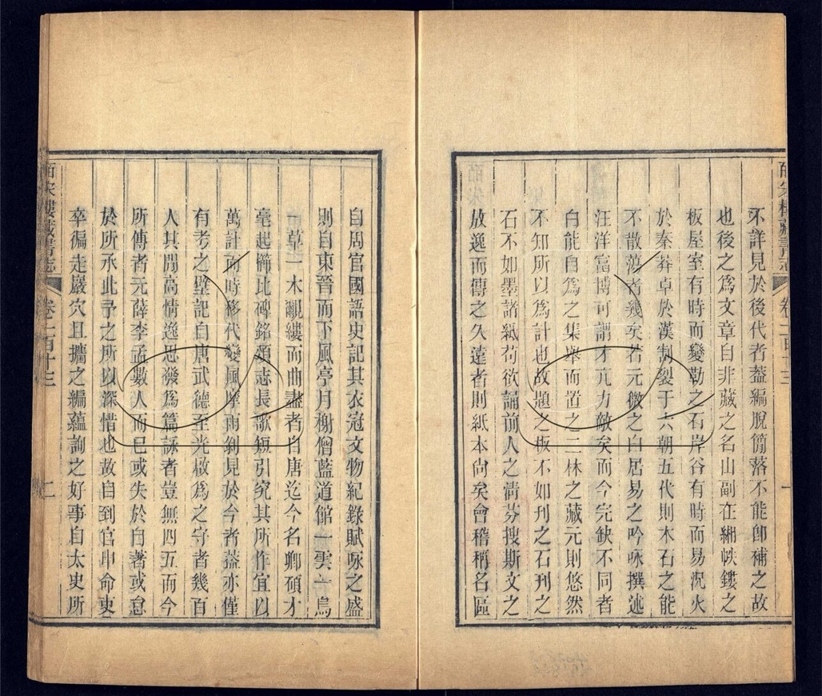 皕宋樓藏書志 卷一百十三 一
不詳見於後代者葢編脫簡落不能卽補之故
也後之爲文章自非藏之名山副在緗帙鏤之
板屋室有時而變勒之石岸谷有時而易況火
於秦莽卓於漢割裂于六朝五代則木石之能
不散蕩者幾矣若元微之白居易之吟咏撰述
汪洋富博可謂才亢力敵矣而今完缺不同者
白能自爲之集舉而置之二林之藏元則悠然
不知所以爲計也故題之板不如刊之石刊之
石不如墨諸紙苟欲誦前人之清芬搜斯文之
放逸而傳之久遠者則紙本尚矣會稽稱名區
自周官國語史記其衣冠文物紀錄賦咏之盛
則自東晉而下風亭月榭僧藍道館一雲一鳥
一草一木覼縷而曲盡者自唐迄今名卿碩才
毫起櫛比碑銘頌志長歌短引究其所作宜以
萬計而時移代變風摩雨剝見於今者葢亦僅
有考之壁記自唐武德至光啟爲之守者幾百
人其間高情逸思發爲篇詠者豈無四五而今
所傳者元薛李孟數人而已或失於自著或怠
於所承此予之所以深惜也故自到官申命吏
卒徧走巖穴且擕之編蘊詢之好事自太史所
皕宋樓藏書志 卷一百十三